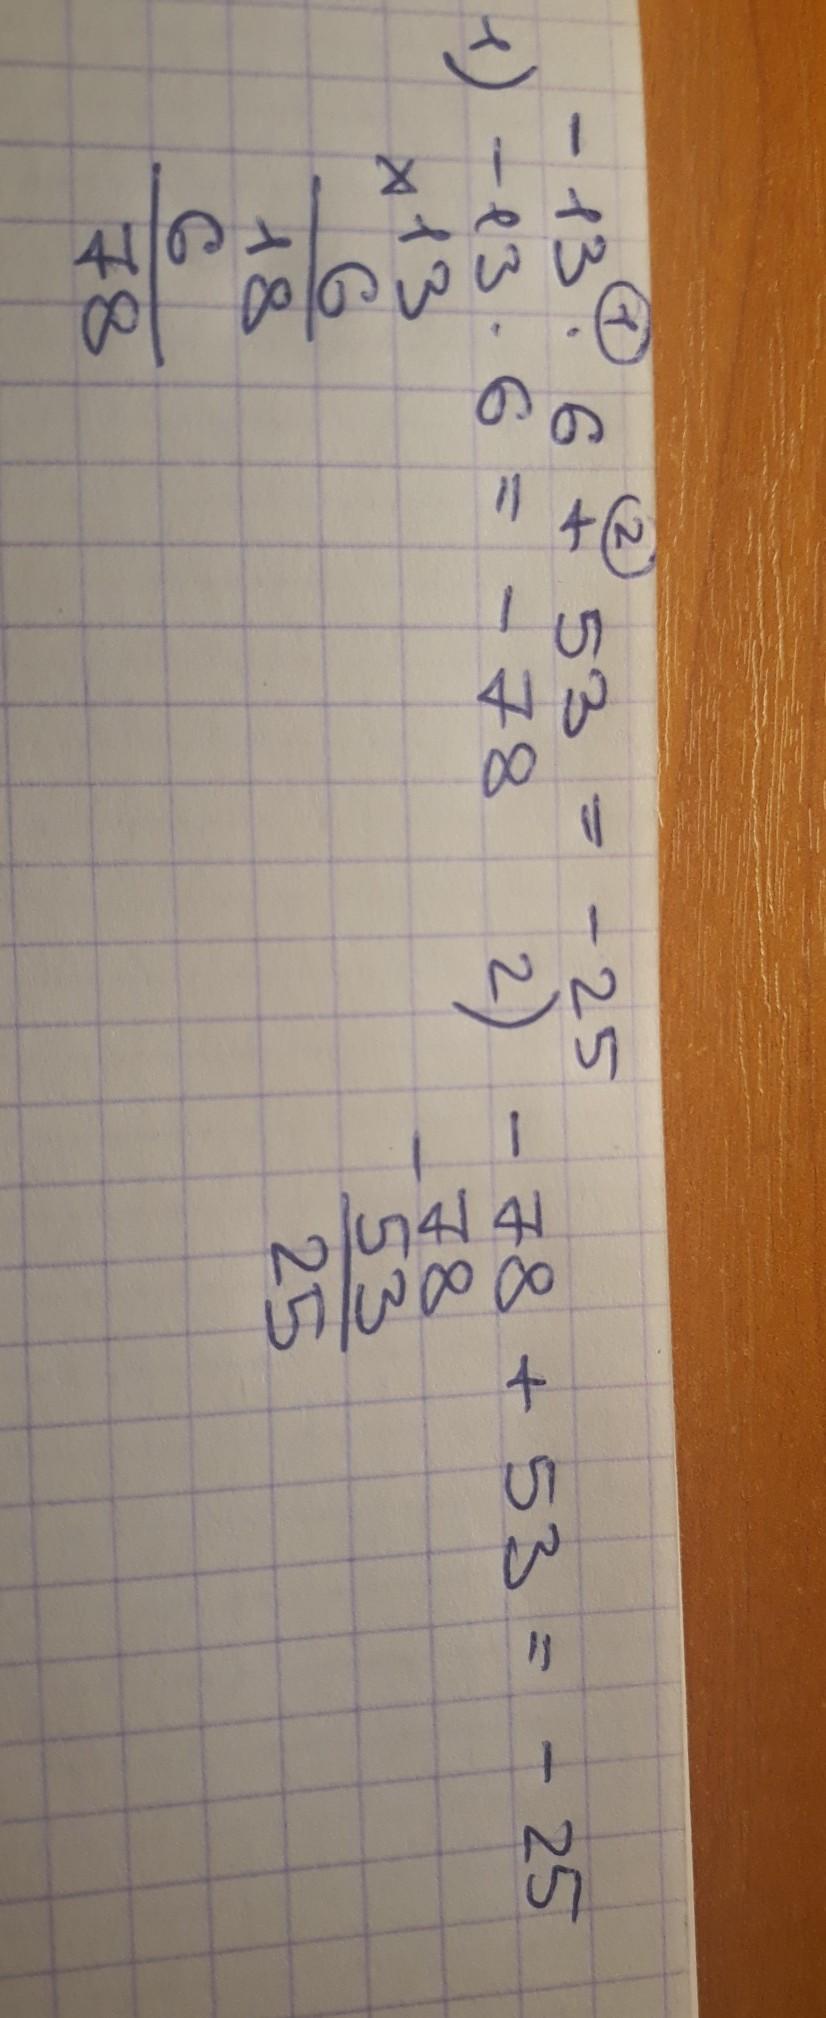 ① ②
- 13 · 6 + 53 = - 25
1) - 13 · 6 = - 78 2) - 78 + 53 = - 25
× 13 - 78
6 53
18 25
6
78